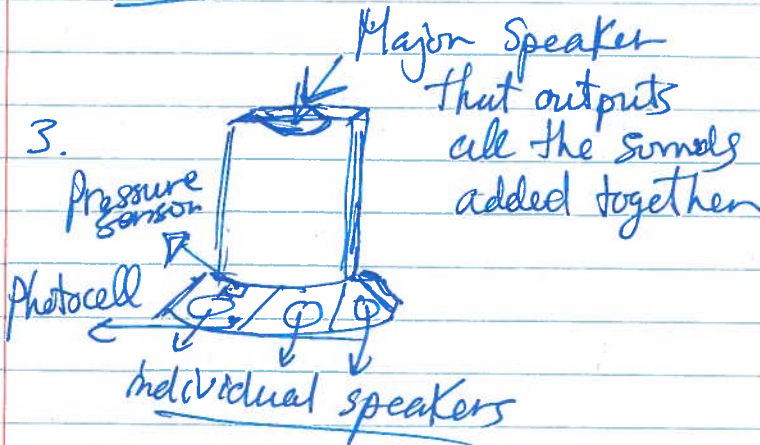 Major Speaker
that outputs
all the sounds
added together
3.
Pressure
sensor
Photocell
individual speakers